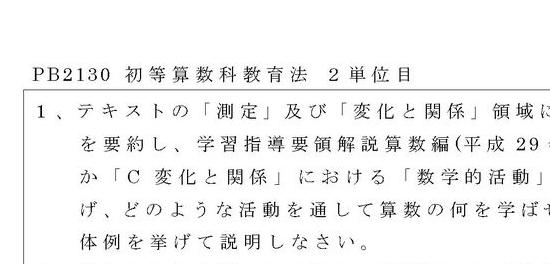 PB2130 初等算数科教育法 2単位目
1、テキストの「測定」及び「変化と関係」領域に
を要約し、学習指導要領解説算数編(平成 29
か「C 変化と関係」における「数学的活動」
げ、どのような活動を通して算数の何を学ばせ
体例を挙げて説明しなさい。